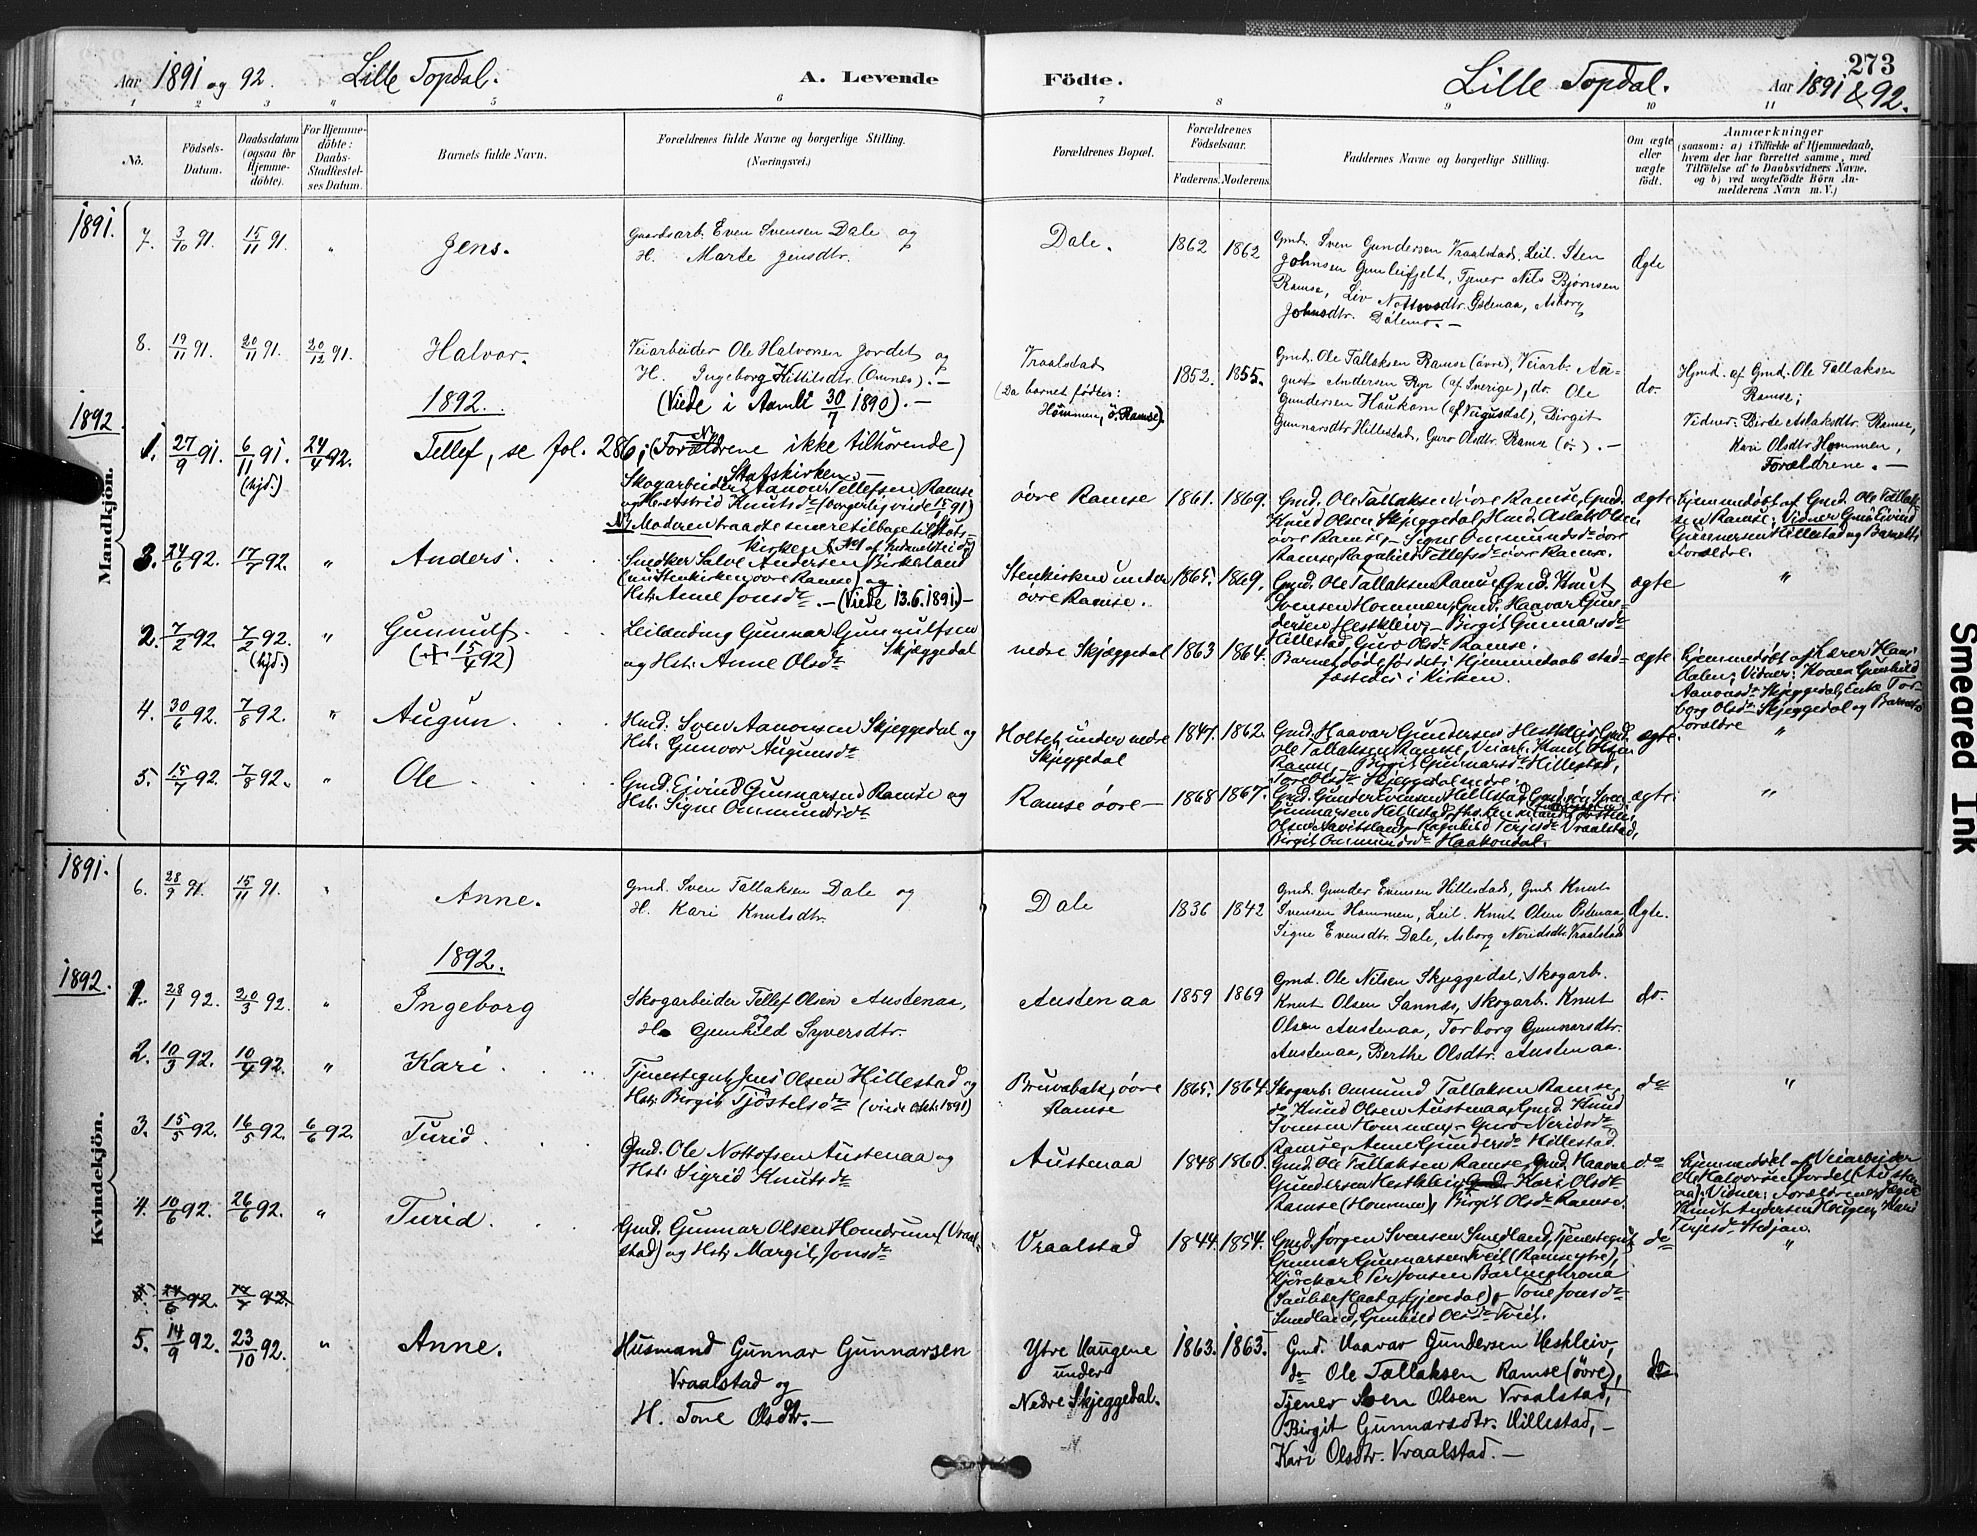 273
Aar 1891 og 92. Lille Topdal. A. Levende Födte. Lille Topdal. Aar 1891 & 92.
1 2 3 4 5 6 7 8 9 10 11
No.
Födsels-
Datum.
Daabsdatum
(ogsaa for
Hjemme-
döbte).
For Hjemme-
döbte:
Daabs-
Stadfæstel-
ses Datum.
Barnets fulde Navn.
Forældrenes fulde Navne og borgerlige Stilling.
(Næringsvei.)
Forældrenes Bopæl.
Forældrenes
Födselsaar.
Faderens. Moderens.
Faddernes Navne og borgerlige Stilling.
Om ægte
eller
uægte
födt.
Anmærkninger
(saasom: a) i Tilfælde af Hjemmedaab,
hvem der har forrettet samme, med
Tilföielse af to Daabsvidners Navne,
og b) ved uægtefödte Börn An-
melderens Navn m. V.)
1891.
Mandkjön.
7. 3/10 91. 15/11 91. " Jens.
Gaardsarb. Even Svensen Dale og
H. Marte Jensdtr.
Dale. 1862 1862
Gmd. Sven Gundersen Vraalstad, Leil. Sten
Johnsen Gunleifjelt, Tjener Nils Bjørnsen
Ramse, Liv Nottovsdtr. Østenaa, Asborg
Johnsdtr. Dølemo. —
Ægte
8. 19/11 91. 20/11 91. 20/12 91. Halvor.
Veiarbeider Ole Halvorsen Jordet og
H. Ingeborg Kittilsdtr. (Omnes). —
(Viede i Aamli 30/7 1890). —
Vraalstad
(Da barnet födtes:
Hommen, ö. Ramse).
1852. 1855.
Gmd. Ole Tallaksen Ramse (övre), Veiarb. Au-
gust Andersen Ryr (af Sverige), do. Ole
Gundersen Haukom (af Vegusdal), Birgit
Gunnarsdtr. Hillestad, Guro Olsdtr. Ramse (ö.). —
do.
Hjmd. af Gmd. Ole Tallaksen
Ramse;
Vidner: Birte Aslaksdtr. Ramse,
Kari Olsdtr. Hommen,
Forældrene. —
1892.
1892
1. 27/9 91. 6/11 91. (hjd.) 24/4 92. Tellef, se fol. 286; (Forældrene ikke tilhørende)
Statskirken —
Skogarbeider Aanon Tellefsen Ramse
og Hst. Astrid Knutsdr (borgerlig viede 15/1 91)
N. Moderen traadte senere tilbage til Stats-
kirken
övre Ramse 1861. 1869.
Gmd. Ole Tallaksen övre Ramse, Gmd.
Knud Olsen Skjeggedal, Hmd. Aslak Olsen
övre Ramse, — Signe Ommundsdr övre
Ramse, Ragnhild Tellefsdr övre Ramse.
ægte
Hjemmedöbt af Gmd. Ole Tallak-
sen Ramse; Vidner Gmd. Eivind
Gunnersen Hillestad og Barnets
Forældre.
3. 24/6 92. 17/7 92. " Anders.
Snedker Salve Andersen Birkeland
(nu Stenkirken övre Ramse) og
Hst. Anne Jonsdr. — (Viede 13.6.1891.) —
Stenkirken under
övre Ramse.
1865. 1869.
Gmd. Ole Tallaksen Ramse, Gmd. Knut
Svensen Hommen, Gmd. Haavar Gun-
dersen Hestkleiv, — Birgit Gunnarsdr
Hillestad, Guro Olsdr Ramse.
ægte "
2. 7/2 92. 7/2 92. (hjd.) " Gunnulf
(+ 15/4 92)
Leilending Gunnar Gunnulfsen
Skjeggedal
og Hst. Anne Olsdr
nedre Skjeggedal 1863 1864.
Barnet döde för dets Hjemmedaab stad-
fæstedes i Kirken.
ægte
Hjemmedöbt af Lærer Hans
Dalen; Vidner: Konen Gunhild
Aanonsdr Skjeggedal, Enke Tor-
borg Olsdr Skjeggedal og Barnets
Forældre
4. 30/6 92. 7/8 92. " Augun.
Hmd. Sven Aanonsen Skjeggedal og
Hst. Gunvor Augunsdr
Holtet under nedre
Skjeggedal
1847. 1862.
Gmd. Haavar Gundersen Hestkleiv, Gmd.
Ole Tallaksen Ramse, Veiarb. Knut Olsen
Ramse, — Birgit Gunnarsdr Hillestad,
Tone Olsdr Skjeggedal nedre.
ægte. "
5. 15/7 92. 7/8 92. " Ole
Gmd. Eivind Gunnarsen Ramse og
Hst. Signe Ommundsdr
Ramse övre — 1868 1867.
Gmd. Gunder Evensen Hillestad,
Gunnarsen Hillestad,
Olsen Ragnhild Terjesdr Vraalstad,
Birgit Ommundsdr Haakondal.
ægte. "
1891.
Kvindekjön.
6. 28/9 91. 15/11 91. " Anne.
Gmd. Sven Tallaksen Dale og
H. Kari Knutsdtr.
Dale 1836 1842
Gmd. Gunder Evensen Hillestad, Gmd. Knut
Svensen Hommen, Leil. Knut Olsen Østenaa,
Signe Evensdtr. Dale, Asborg Neridsdtr. Vraalstad
Ægte.
1892.
1892.
1. 28/1 92. 20/3 92. " Ingeborg
Skogarbeider Tellef Olsen Austenaa,
H. Gunhild Syversdtr.
og
Austenaa 1859 1869
Gmd. Ole Nilsen Skjeggedal, Skogarb.
Knut Olsen Sannes, Skogarb. Knut
Olsen Austenaa, Torborg Gunnarsdtr.
Austenaa, Berthe Olsdtr. Austenaa.
do.
2. 10/3 92. 10/4 92. " Kari.
Tjenestegut Jens Olsen Hillestad og
Hst. Birgit Tjöstelsdr (viede Okt. 1891)
Bruvabak, övre
Ramse
1865. 1864.
Skogarb. Ommund Tallaksen Ramse,
do Knud Olsen Austenaa, Gmd. Knud
Svensen Hommen, — Guro Neridsdr
Ramse, Anne Gundersdr Hillestad.
do "
3. 15/5 92. 16/5 92. 6/6 92. Turid.
Gmd. Ole Nottofsen Austenaa og
Hst. Sigrid Knutsdr
Austenaa 1848 1860.
Gmd. Ole Tallaksen Ramse, Gmd. Haavar
Gundersen Hestkleiv, Kari Olsdr
Ramse (Hommen), Birgit Olsdr Ramse.
do
Hjemmedöbt af Veiarbeider
Ole Halvorsen Jordet (Austen-
aa); Vidner: Forældrene,
Knut Andersen Haugen, Kari
Terjesdr
4. 10/6 92. 26/6 92. " Turid.
Gmd. Gunnar Olsen Homdrum (Vraal-
stad) og Hst. Margit Jonsdr
Vraalstad 1844. 1854.
Gmd. Jorgen Svensen Smedland, Tjenestegut
Gunnar Gunnarsen Treit (Ramse ytre),
Kjörekarl Per Jonsen Barlinghrona
Tone Jonsdr
Smedland, Gunhild Olsdr Treit.
do "
5. 14/9 92. 23/10 92. " Anne.
Husmand Gunnar Gunnarsen
Vraalstad og
H. Tone Olsdtr. —
Ytre Haugene
under
Nedre Skjeggedal.
1863. 1863.
Gmd. Haavar Gundersen Heskleiv,
do Ole Tallaksen Ramse (övre),
Tjener Sven Olsen Vraalstad,
Birgit Gunnarsdtr. Hillestad, —
Kari Olsdtr. Vraalstad. —
do
Smeared Ink